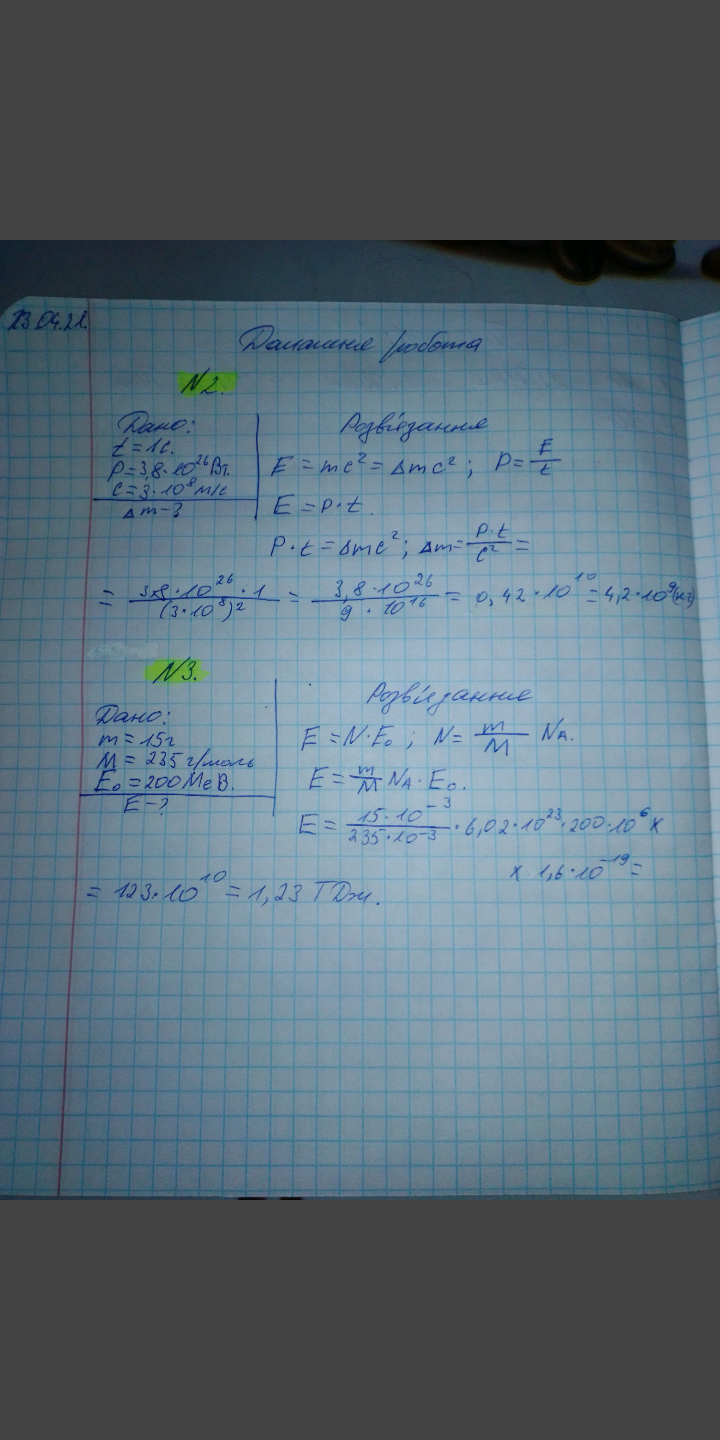 23.04.21.
Домашня робота
N2.
Дано:
t = 1с.
P = 3,8·10²⁶ Вт.
c = 3·10⁸ м/с
Δm - ?
Розв'язання
E = mc² = Δmc² ; P = E/t
E = P·t.
P·t = Δmc² ; Δm = P·t/c² =
= 3,8·10²⁶·1/(3·10⁸)² = 3,8·10²⁶/9·10¹⁶ = 0,42·10¹⁰ = 4,2·10⁹ (кг)
N3.
Дано:
m = 15г
M = 235 г/моль
E₀ = 200 МеВ.
E - ?
Розв'язання
E = N·E₀ ; N = m/M N_A.
E = m/M N_A·E₀.
E = 15·10⁻³/235·10⁻³ · 6,02·10²³·200·10⁶ x
x 1,6·10⁻¹⁹ =
= 123·10¹⁰ = 1,23 ТДж.